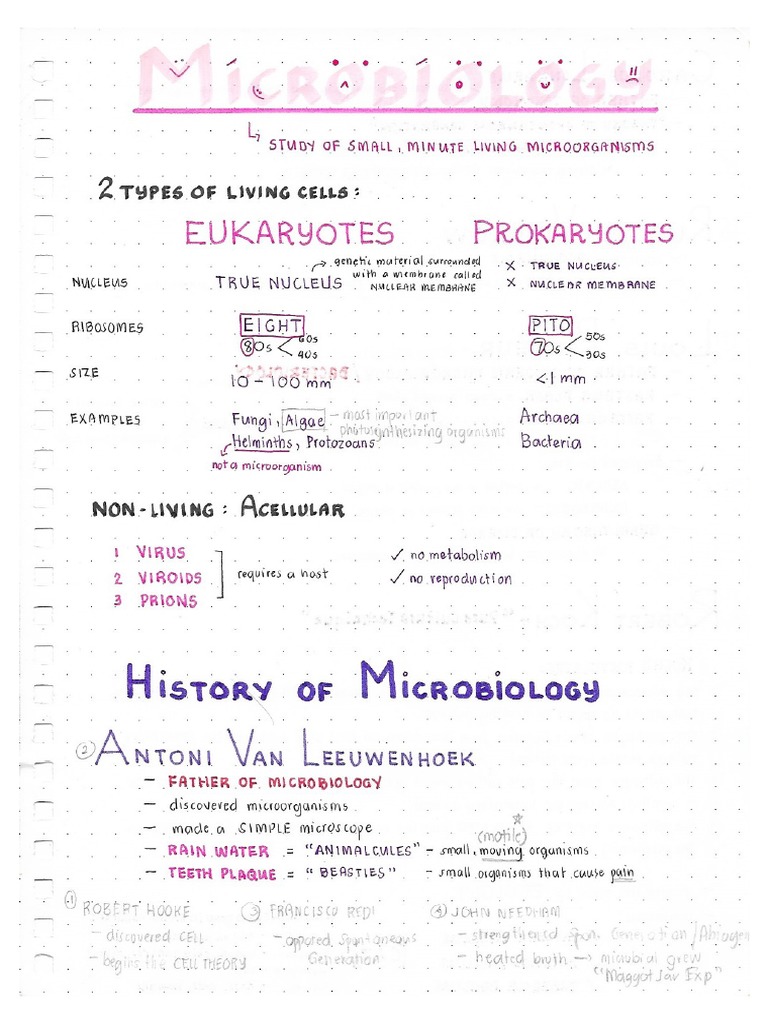 MICROBIOLOGY
↳ STUDY OF SMALL, MINUTE LIVING MICROORGANISMS
2 TYPES OF LIVING CELLS:
EUKARYOTES PROKARYOTES
NUCLEUS TRUE NUCLEUS → genetic material surrounded with a membrane called NUCLEAR MEMBRANE
X TRUE NUCLEUS
X NUCLEAR MEMBRANE
RIBOSOMES EIGHT PITO
80s < 60s 40s 70s < 50s 30s
SIZE 10 - 100 mm <1 mm
EXAMPLES Fungi, Algae - most important photosynthesizing organisms Archaea
Helminths, Protozoans Bacteria
not a microorganism
NON-LIVING: ACELLULAR
1 VIRUS ✓ no metabolism
2 VIROIDS requires a host ✓ no reproduction
3 PRIONS
HISTORY OF MICROBIOLOGY
② ANTONI VAN LEEUWENHOEK
- FATHER OF MICROBIOLOGY
- discovered microorganisms
- made a SIMPLE microscope
(motile)
- RAIN WATER = "ANIMALCULES" - small, moving organisms
- TEETH PLAQUE = "BEASTIES" - small organisms that cause pain
① ROBERT HOOKE ③ FRANCISCO REDI ④ JOHN NEEDHAM
- discovered CELL - opposed Spontaneous - strengthened Spon. Generation / Abiogen
- begins the CELL THEORY Generation - heated broth → microbial grew
"Maggot Jar Exp"